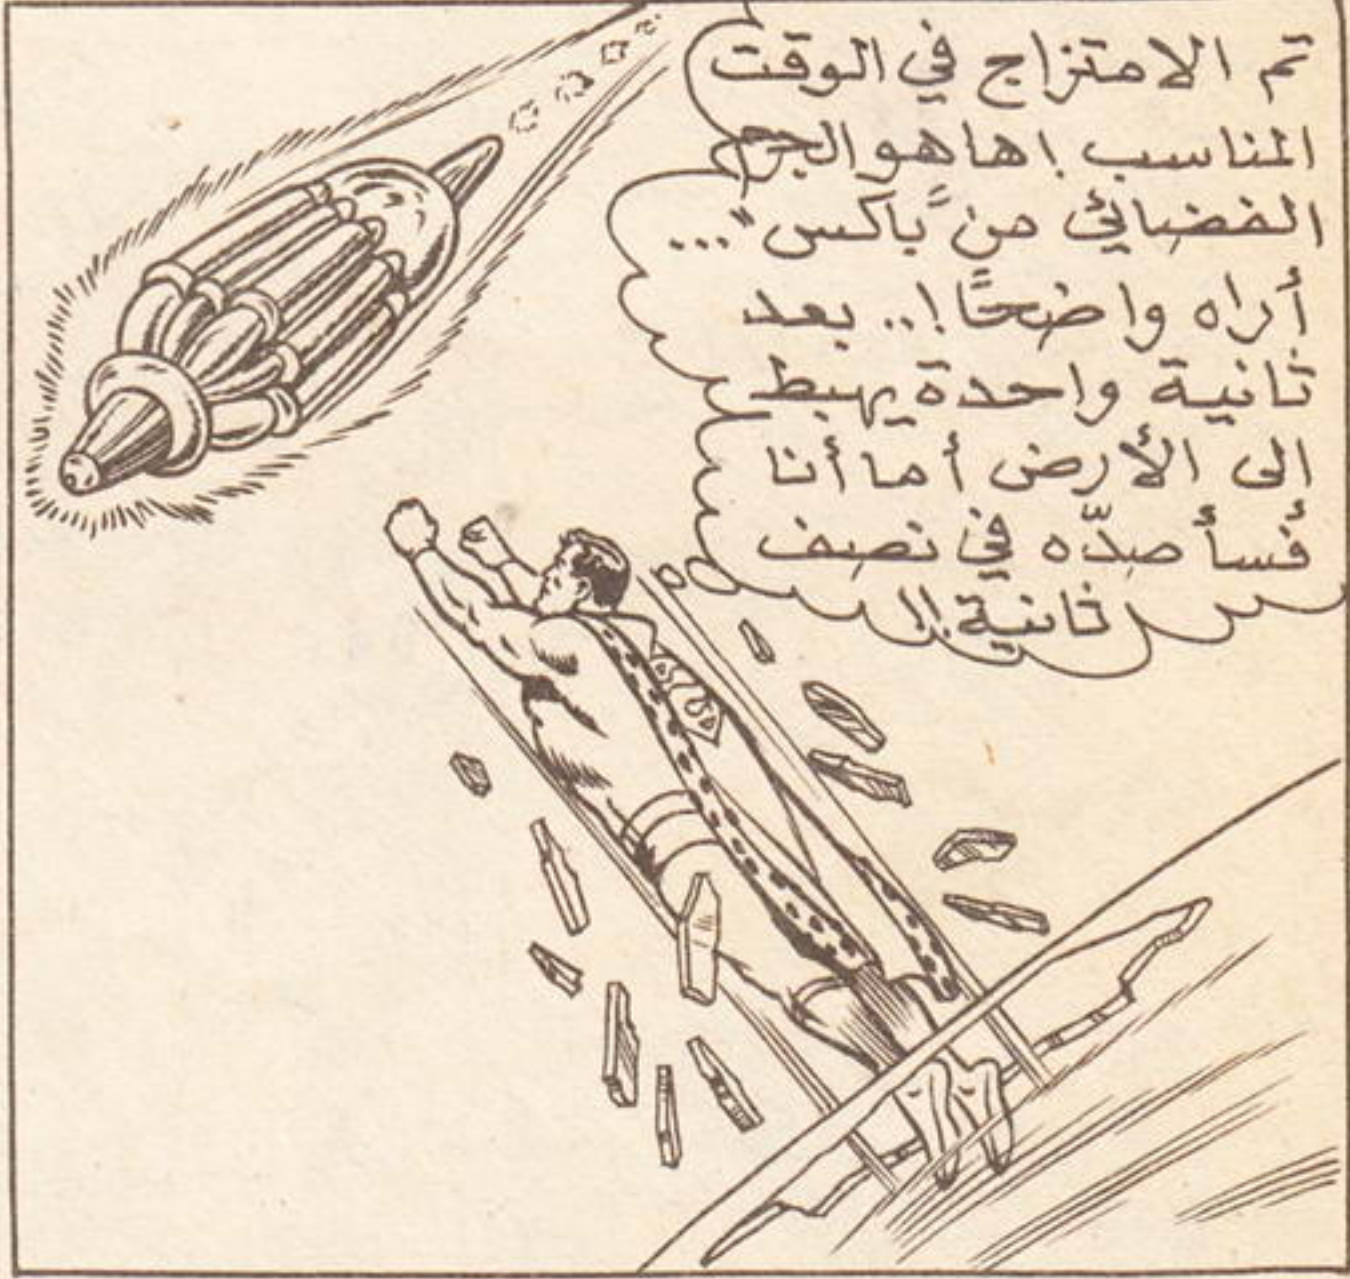 تم الامتزاج في الوقت
المناسب ! ها هو الجرم
الفضائي من "باكس" ...
أراه واضحًا !.. بعد
ثانية واحدة يهبط
الى الأرض أما أنا
فسأصدّه في نصف
ثانية !!
S